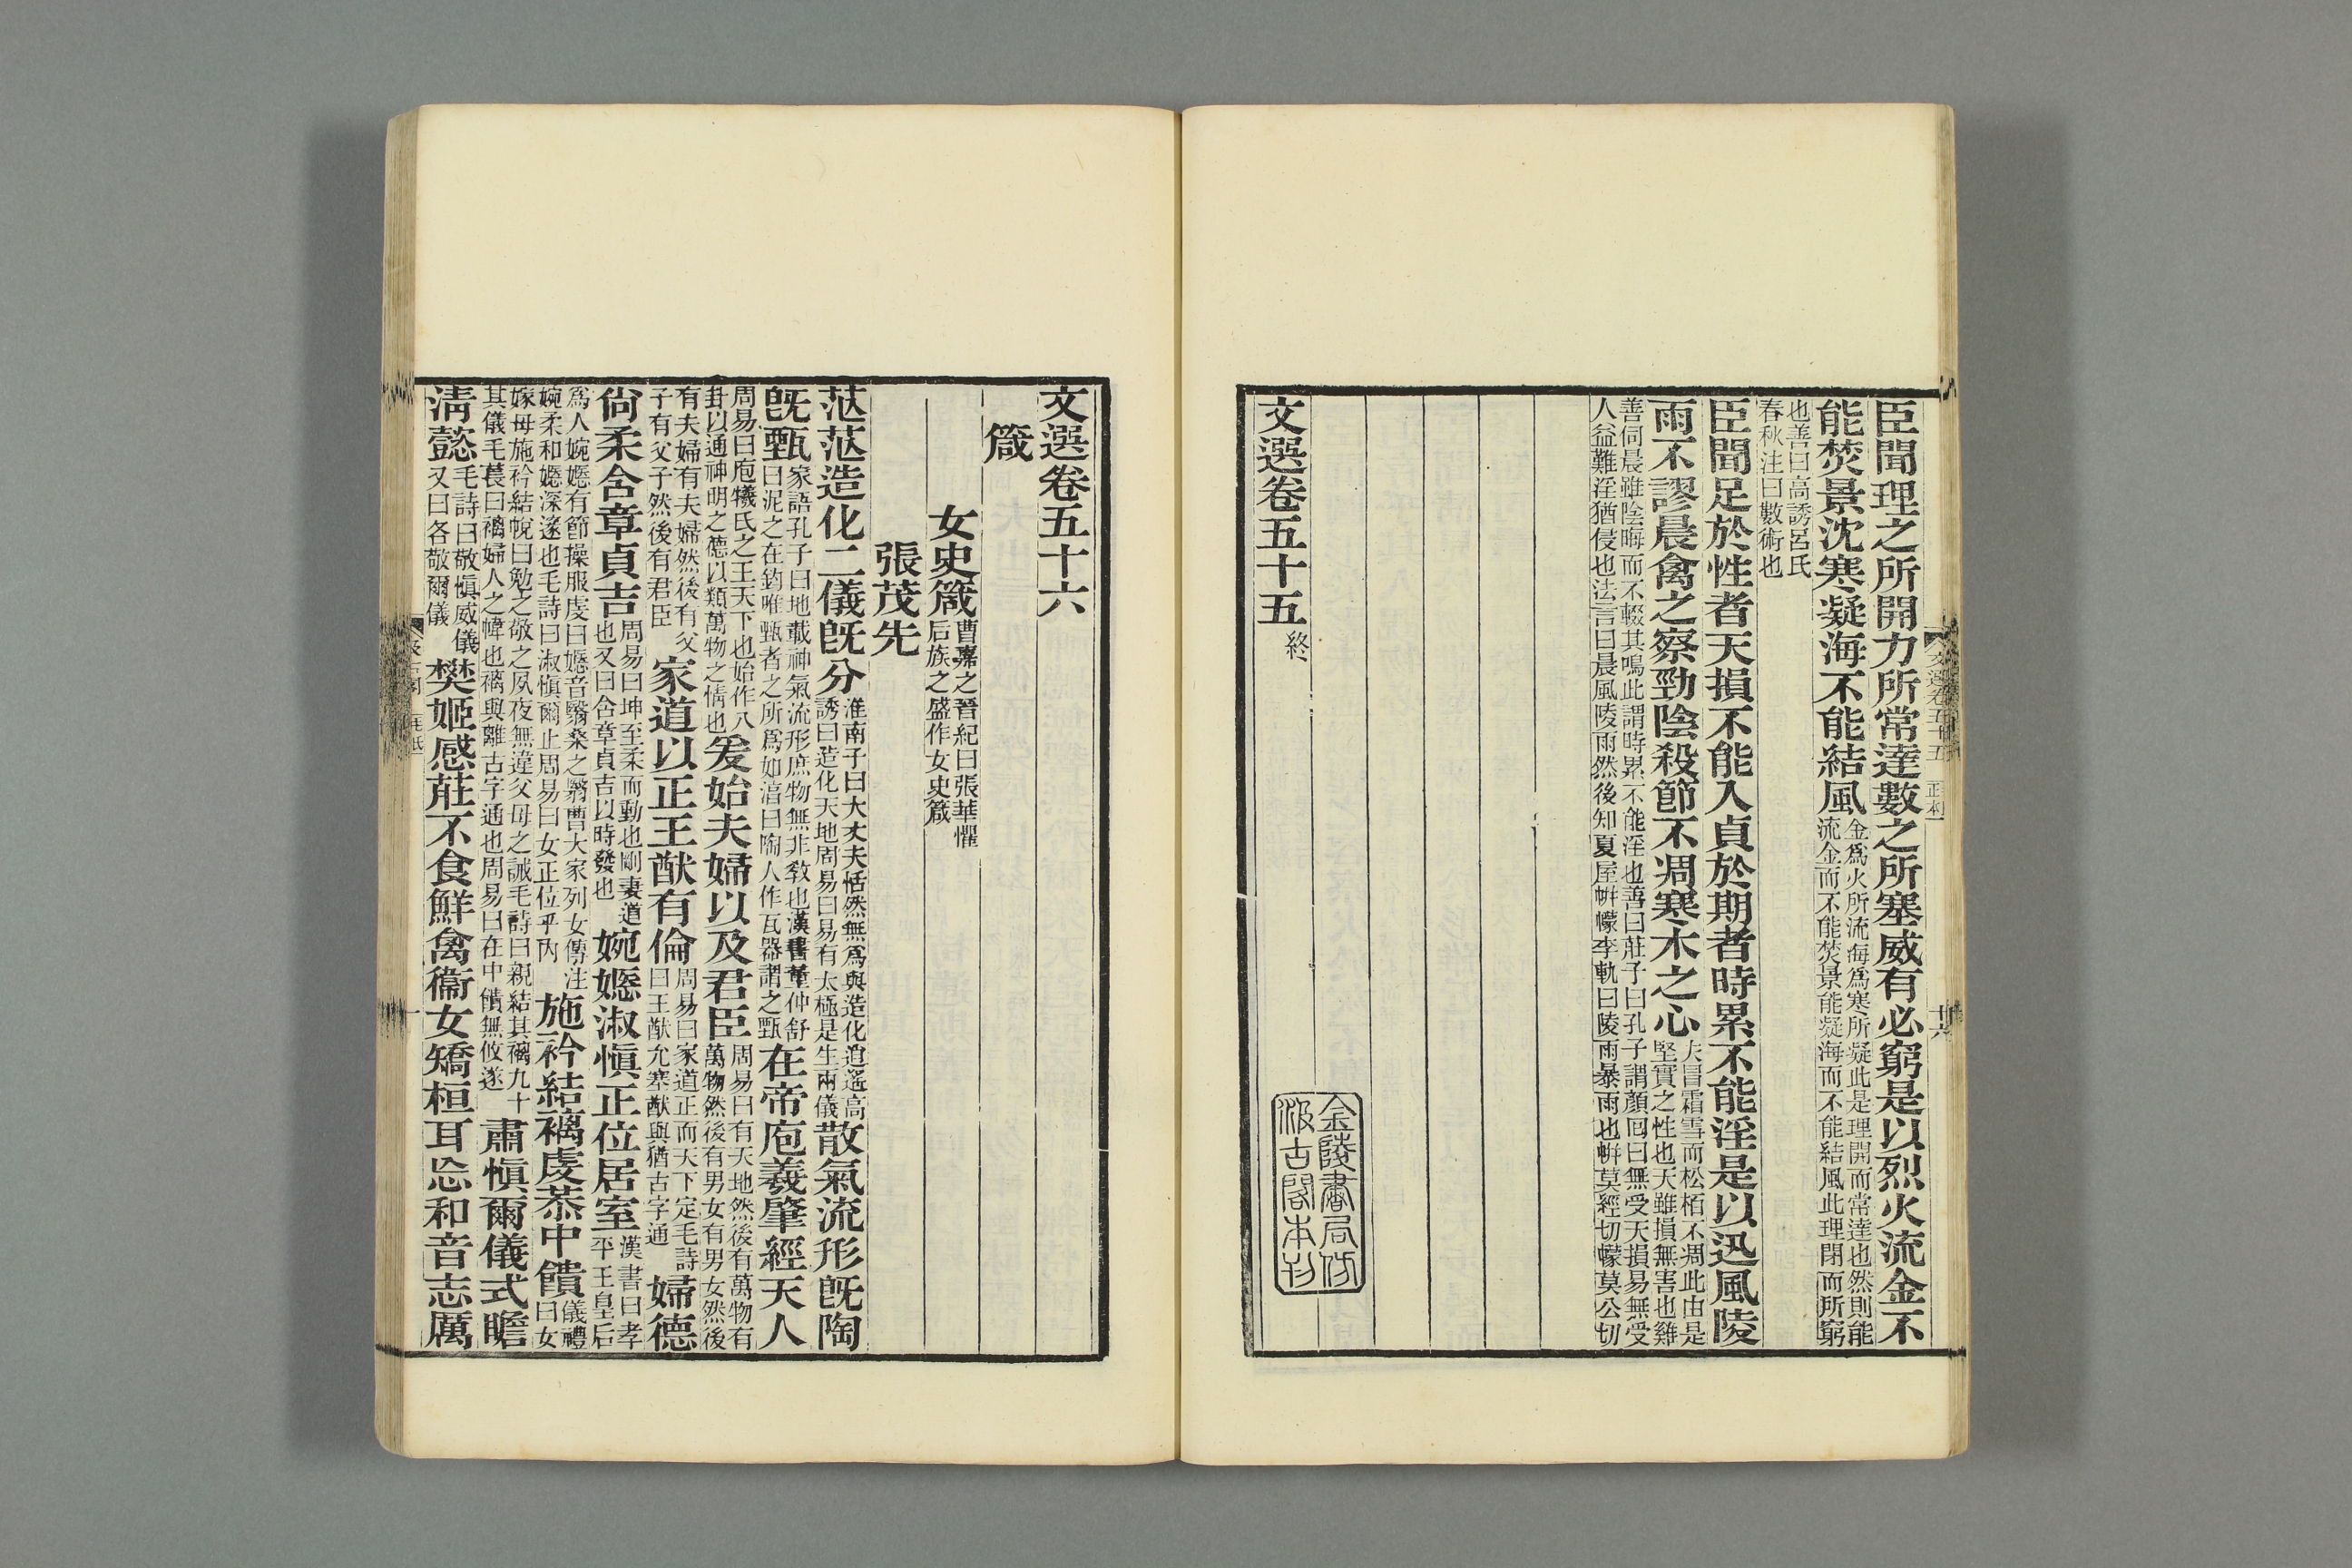 臣聞理之所開力所常達數之所塞威有必窮是以烈火流金不
能焚景沈寒凝海不能結風金爲火所流海爲寒所凝此是理開而常達也然則能
流金而不能焚景能凝海而不能結風此理閉而所窮
也善曰高誘呂氏
春秋注曰數術也
臣聞足於性者天損不能入貞於期者時累不能淫是以迅風陵
雨不謬晨禽之察勁陰殺節不凋寒木之心夫冒霜雪而松栢不凋此由是
堅實之性也天雖損無害也雞
善伺晨雖陰晦而不輟其鳴此謂時累不能淫也善曰莊子曰孔子謂顏回曰無受天損易無受
人益難淫猶侵也法言曰晨風陵雨然後知夏屋帡幪李軌曰陵雨暴雨也帡莫經切幪莫公切
文選卷五十五終
金陵書局仿
汲古閣本刊
文選卷五十五
十六
文選卷五十六
箴
女史箴曹嘉之晉紀曰張華懼
后族之盛作女史箴
張茂先
茫茫造化二儀旣分淮南子曰大丈夫恬然無爲與造化逍遙高
誘曰造化天地周易曰易有太極是生兩儀
散氣流形旣陶
旣甄家語孔子曰地載神氣流形庶物無非敎也漢書董仲舒
曰泥之在鈞唯甄者之所爲如淳曰陶人作瓦器謂之甄
在帝庖羲肇經天人
周易曰庖犧氏之王天下也始作八
卦以通神明之德以類萬物之情也
爰始夫婦以及君臣周易曰有天地然後有萬物有
萬物然後有男女有男女然後
有夫婦有夫婦然後有父
子有父子然後有君臣
家道以正王猷有倫周易曰家道正而天下定毛詩
曰王猷允塞猷與猶古字通
婦德
尙柔含章貞吉周易曰坤至柔而動也剛妻道
也又曰含章貞吉以時發也
婉嫕淑愼正位居室漢書曰孝
平王皇后
爲人婉嫕有節操服虔曰嫕音翳桑之翳曹大家列女傳注
婉柔和嫕深邃也毛詩曰淑愼爾止周易曰女正位乎內
施衿結褵虔恭中饋儀禮
曰女
嫁母施衿結帨曰勉之敬之夙夜無違父母之誡毛詩曰親結其褵九十
其儀毛萇曰褵婦人之幃也褵與離古字通也周易曰在中饋無攸遂
肅愼爾儀式瞻
淸懿毛詩曰敬愼威儀
又曰各敬爾儀
樊姬感莊不食鮮禽衞女矯桓耳忘和音志厲